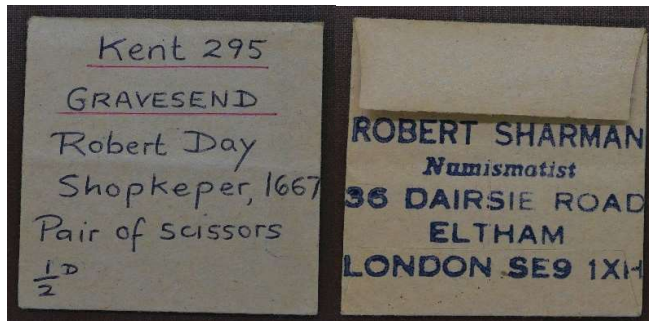 Kent 295
GRAVESEND
Robert Day
Shopkeper, 1667
Pair of scissors
1/2 D
ROBERT SHARMAN
Numismatist
36 DAIRSIE ROAD
ELTHAM
LONDON SE9 1XH